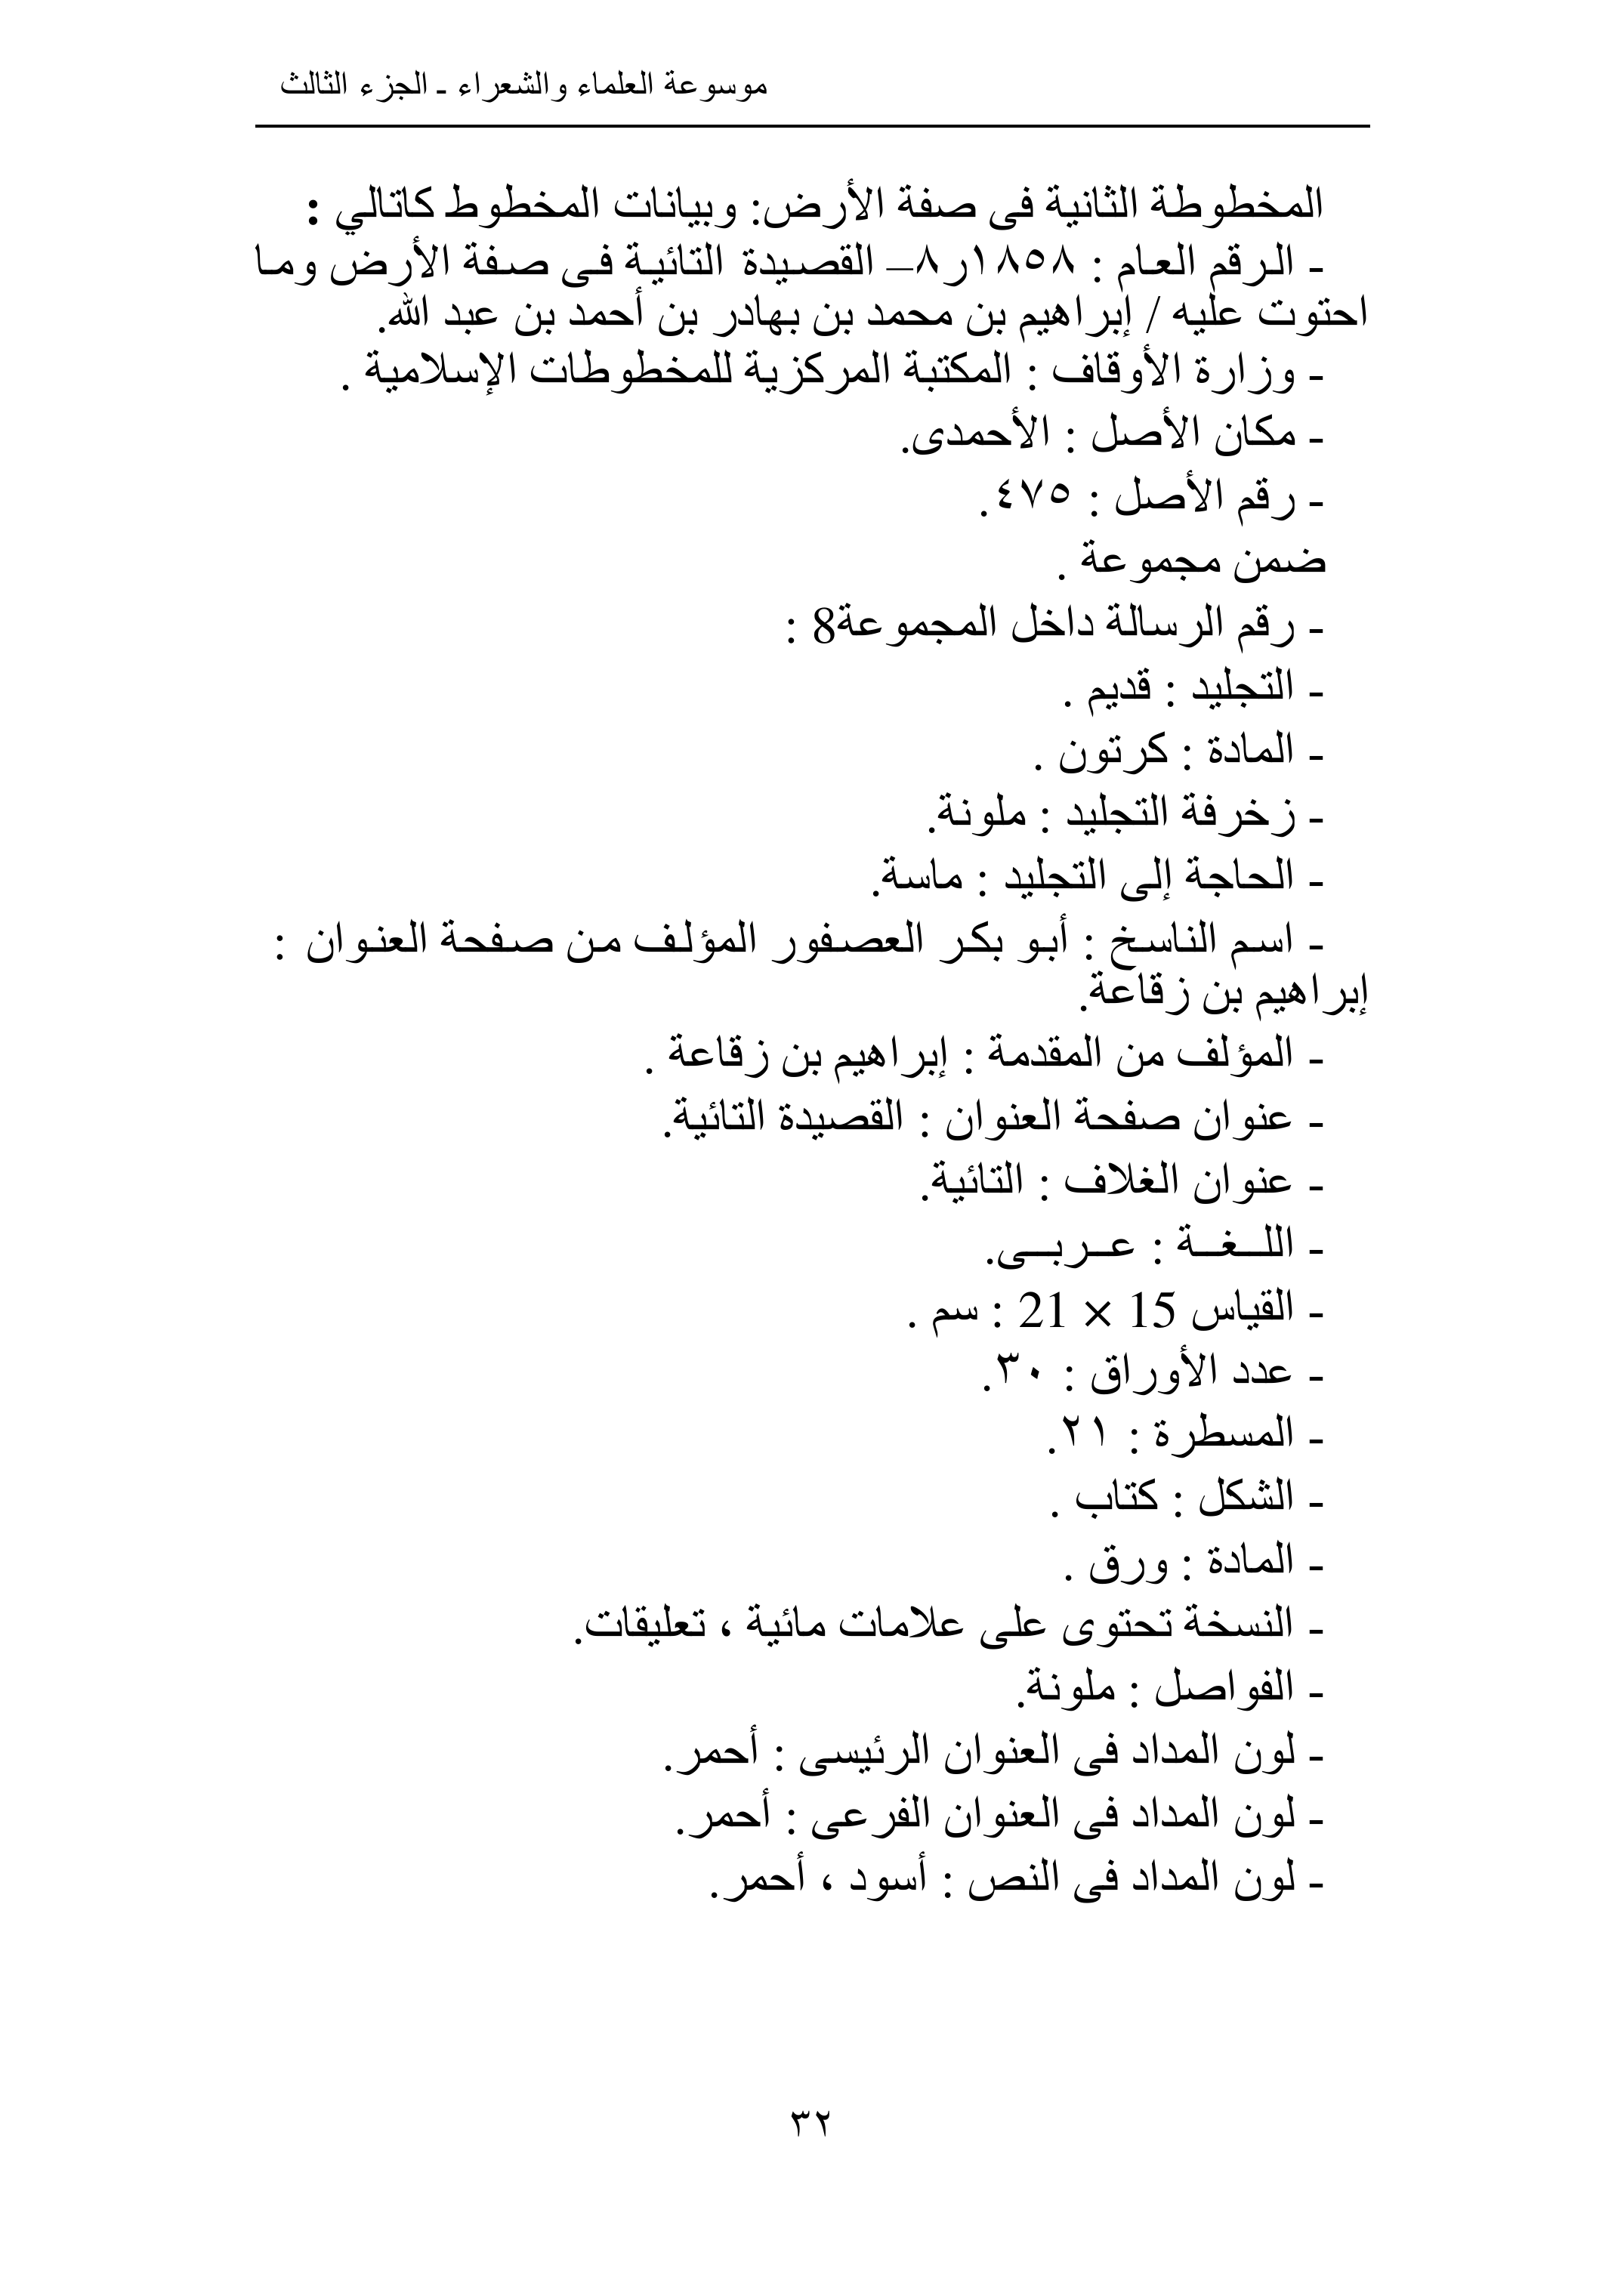 موسوعة العلماء والشعراء ـ الجزء الثالث
المخطوطة الثانية فى صفة الأرض: وبيانات المخطوط كاتالي :
- الرقم العام : ١٨٥٨ر٨– القصيدة التائية فى صفة الأرض وما
احتوت عليه / إبراهيم بن محمد بن بهادر بن أحمد بن عبد الله.
- وزارة الأوقاف : المكتبة المركزية للمخطوطات الإسلامية .
- مكان الأصل : الأحمدى.
- رقم الأصل : ٤٧٥.
ضمن مجموعة .
- رقم الرسالة داخل المجموعة8 :
- التجليد : قديم .
- المادة : كرتون .
- زخرفة التجليد : ملونة.
- الحاجة إلى التجليد : ماسة.
- اسم الناسخ : أبو بكر العصفور المؤلف من صفحة العنوان :
إبراهيم بن زقاعة.
- المؤلف من المقدمة : إبراهيم بن زقاعة .
- عنوان صفحة العنوان : القصيدة التائية.
- عنوان الغلاف : التائية.
- اللـــغـــة : عـــربـــى.
- القياس 15 × 21 : سم .
- عدد الأوراق : ٣٠.
- المسطرة : ٢١.
- الشكل : كتاب .
- المادة : ورق .
- النسخة تحتوى على علامات مائية ، تعليقات.
- الفواصل : ملونة.
- لون المداد فى العنوان الرئيسى : أحمر.
- لون المداد فى العنوان الفرعى : أحمر.
- لون المداد فى النص : أسود ، أحمر.
٣٢